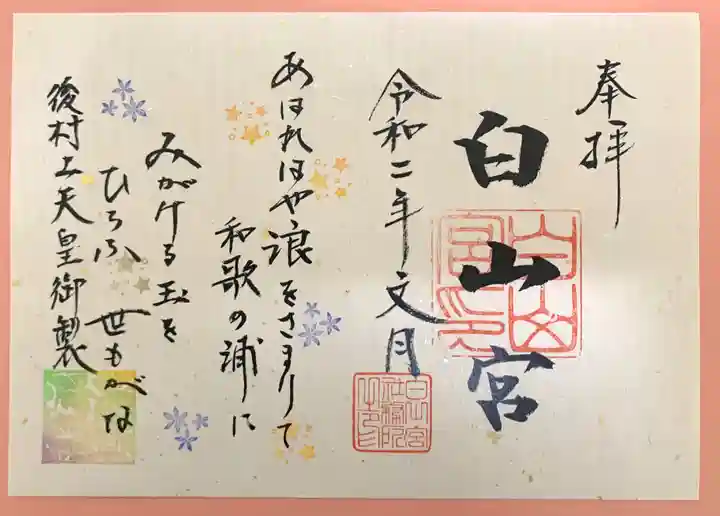 奉拝
白山宮
令和二年文月
あはれはや浪をさまりて
和歌の浦に
みがける玉を
ひろふ世もがな
後村上天皇御製
白山宮印